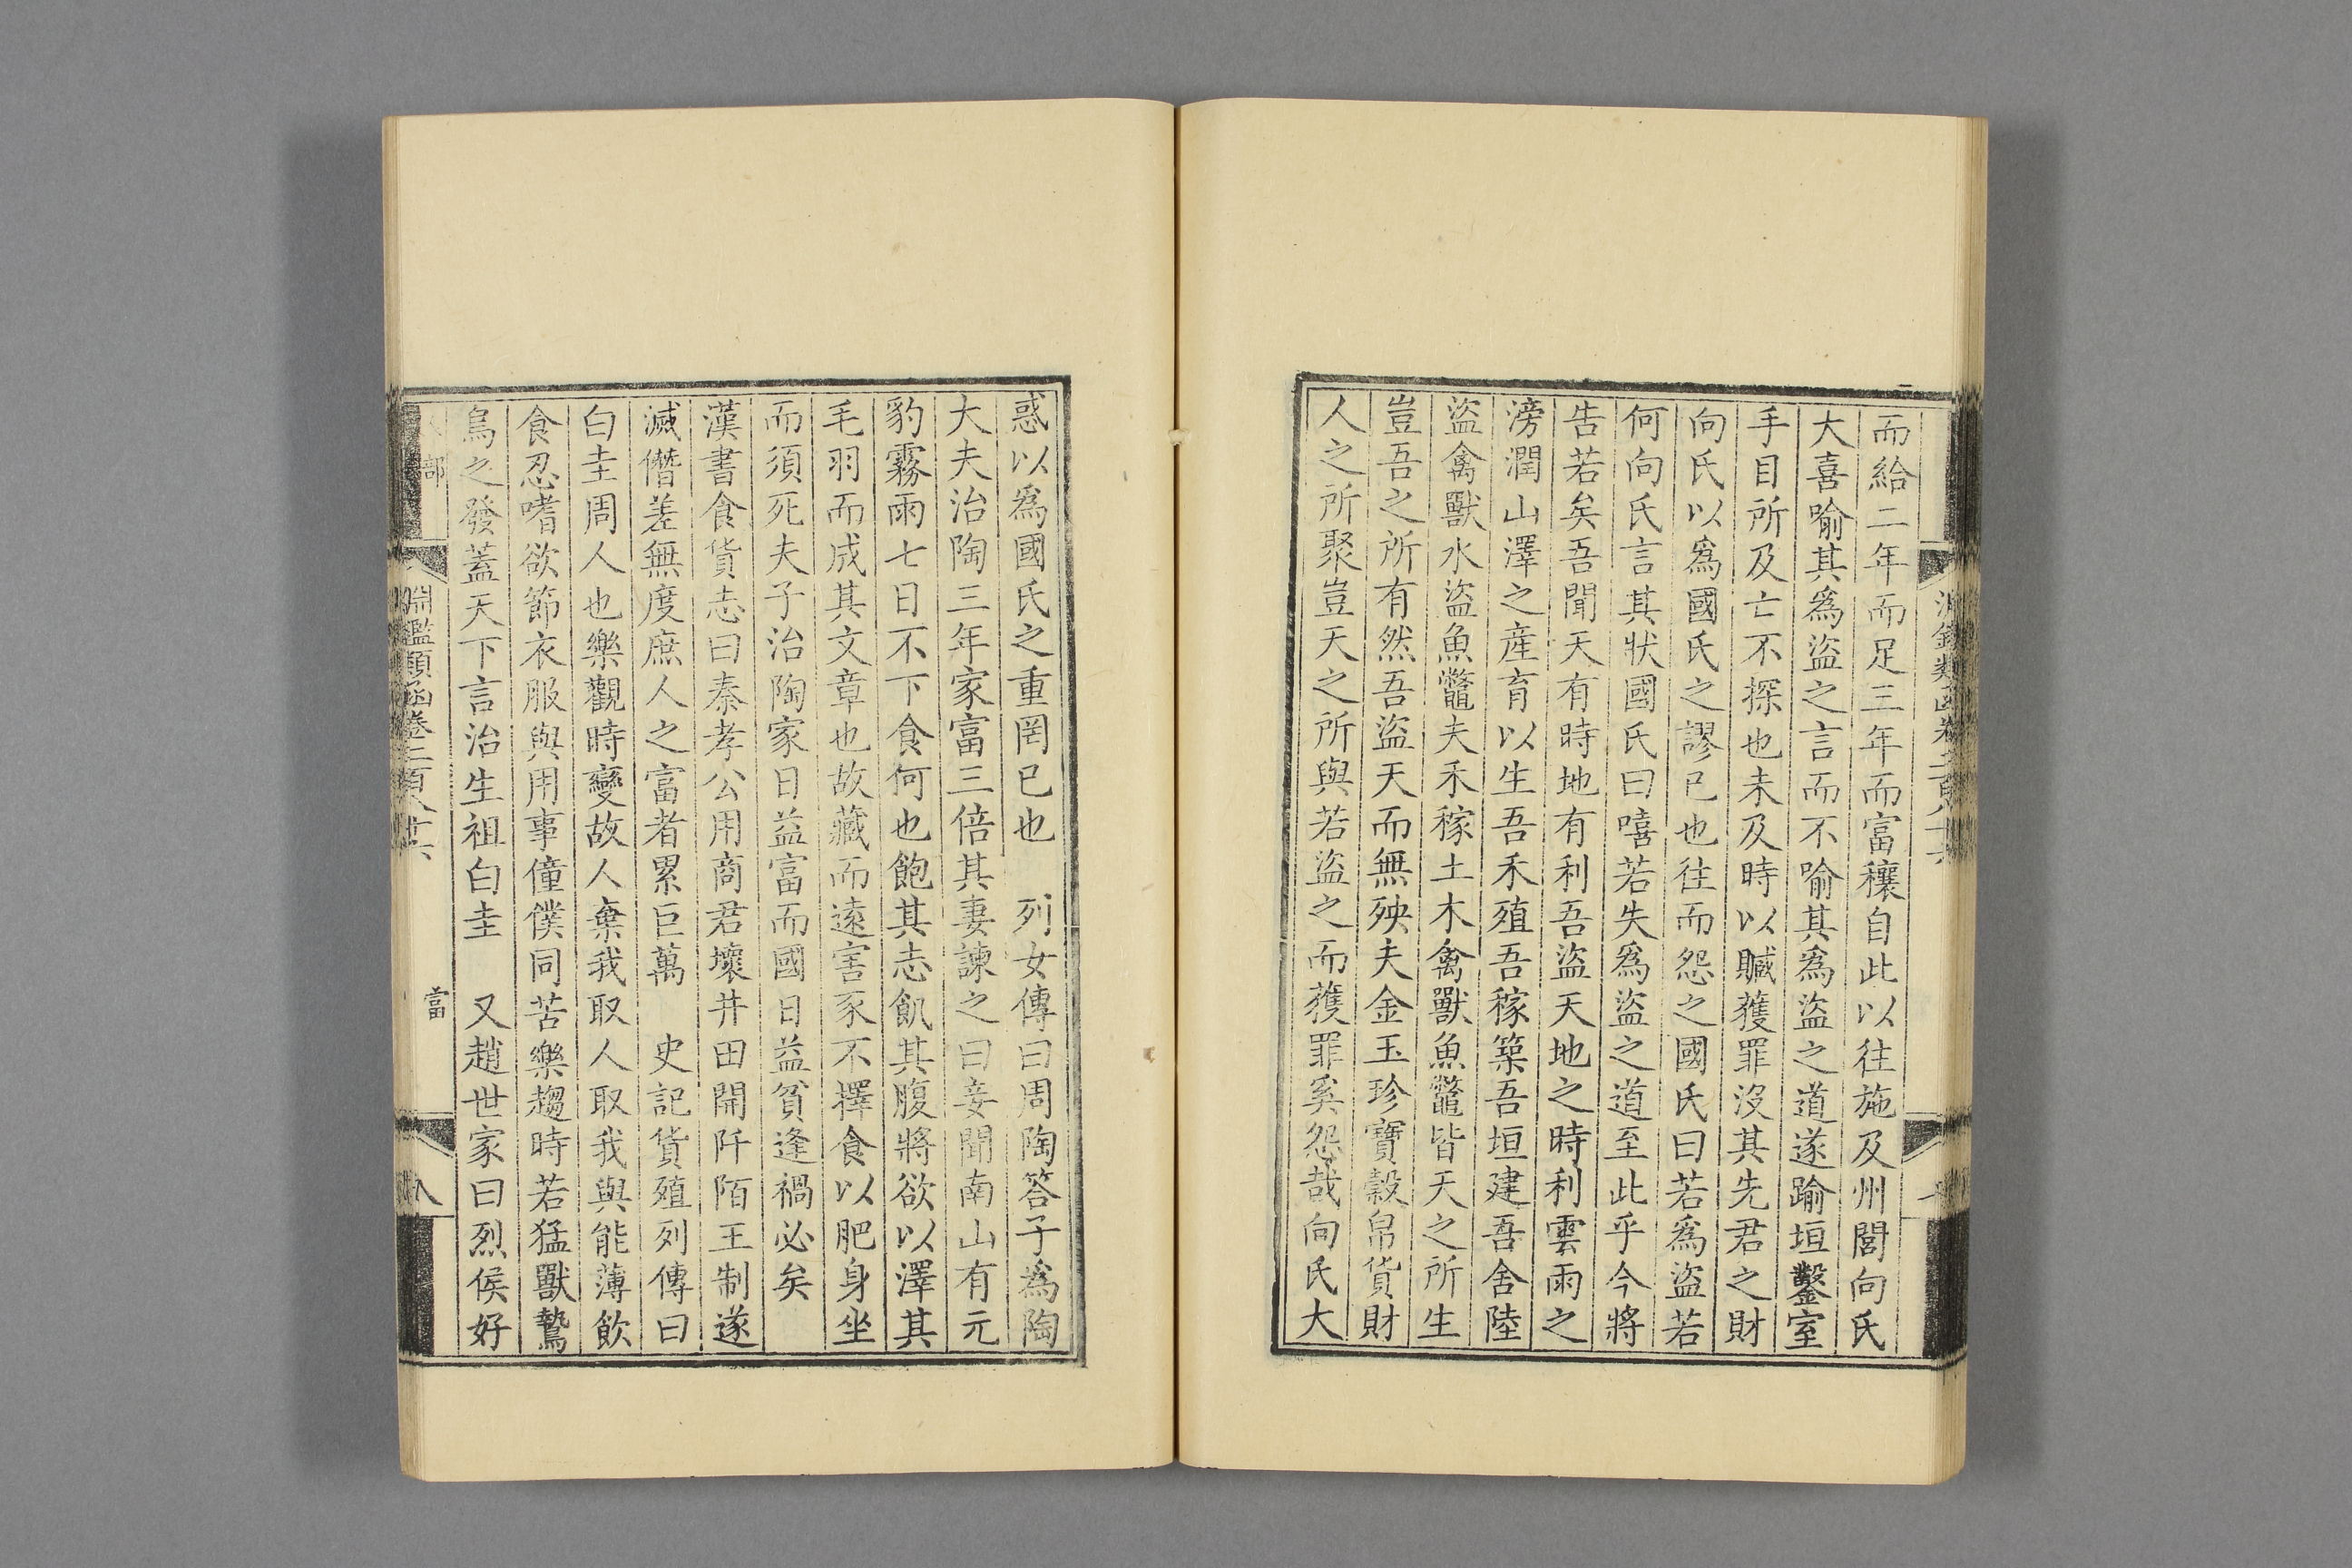 而給二年而足三年而富穰自此以往施及州閭向氏
大喜喻其為盜之言而不喻其為盜之道遂踰垣鑿室
手目所及亡不探也未及時以贓獲罪沒其先君之財
向氏以為國氏之謬已也往而怨之國氏曰若為盜若
何向氏言其狀國氏曰嘻若失為盜之道至此乎今將
告若矣吾聞天有時地有利吾盜天地之時利雲雨之
滂潤山澤之產育以生吾禾殖吾稼築吾垣建吾舍陸
盜禽獸水盜魚鼈夫禾稼土木禽獸魚鼈皆天之所生
豈吾之所有然吾盜天而無殃夫金玉珍寶穀帛貨財
人之所聚豈天之所與若盜之而獲罪奚怨哉向氏大
惑以為國氏之重罔已也　列女傳曰周陶答子為陶
大夫治陶三年家富三倍其妻諫之曰妾聞南山有元
豹霧雨七日不下食何也飽其志飢其腹將欲以澤其
毛羽而成其文章也故藏而遠害豕不擇食以肥身坐
而須死夫子治陶家日益富而國日益貧逢禍必矣
漢書食貨志曰秦孝公用商君壞井田開阡陌王制遂
滅僭差無度庶人之富者累巨萬　史記貨殖列傳曰
白圭周人也樂觀時變故人棄我取人取我與能薄飲
食忍嗜欲節衣服與用事僮僕同苦樂趨時若猛獸鷙
鳥之發蓋天下言治生祖白圭　又趙世家曰烈侯好
部　淵鑑類函卷二百八十六　富　八